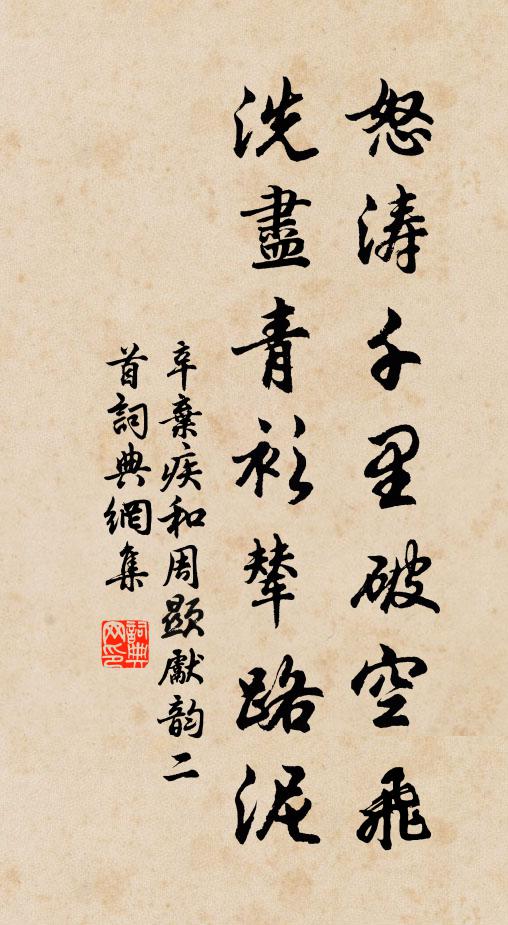 怒涛千里破空飛
洗盡青衫輦路泥
辛棄疾和周顯獻韵二
首詞典網集
詞典網印